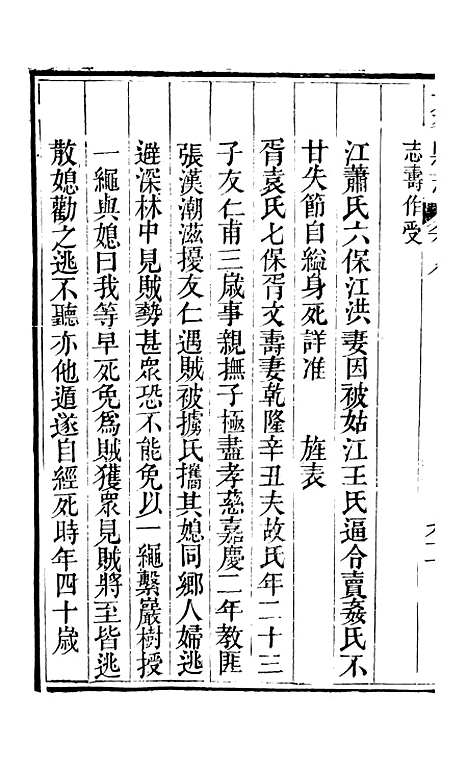 志壽作受
江蕭氏六保江洪妻因被姑江王氏逼令賣姦氏不
甘失節自縊身死詳准　旌表
胥袁氏七保胥文壽妻乾隆辛丑夫故氏年二十三
子友仁甫三歲事親撫子極盡孝慈嘉慶二年教匪
張漢潮滋擾友仁遇賊被擄氏攜其媳同鄉人婦逃
避深林中見賊勢甚衆恐不能免以一繩繫巖樹授
一繩與媳曰我等早死免為賊獲衆見賊將至皆逃
散媳勸之逃不聽亦他遁遂自經死時年四十歲